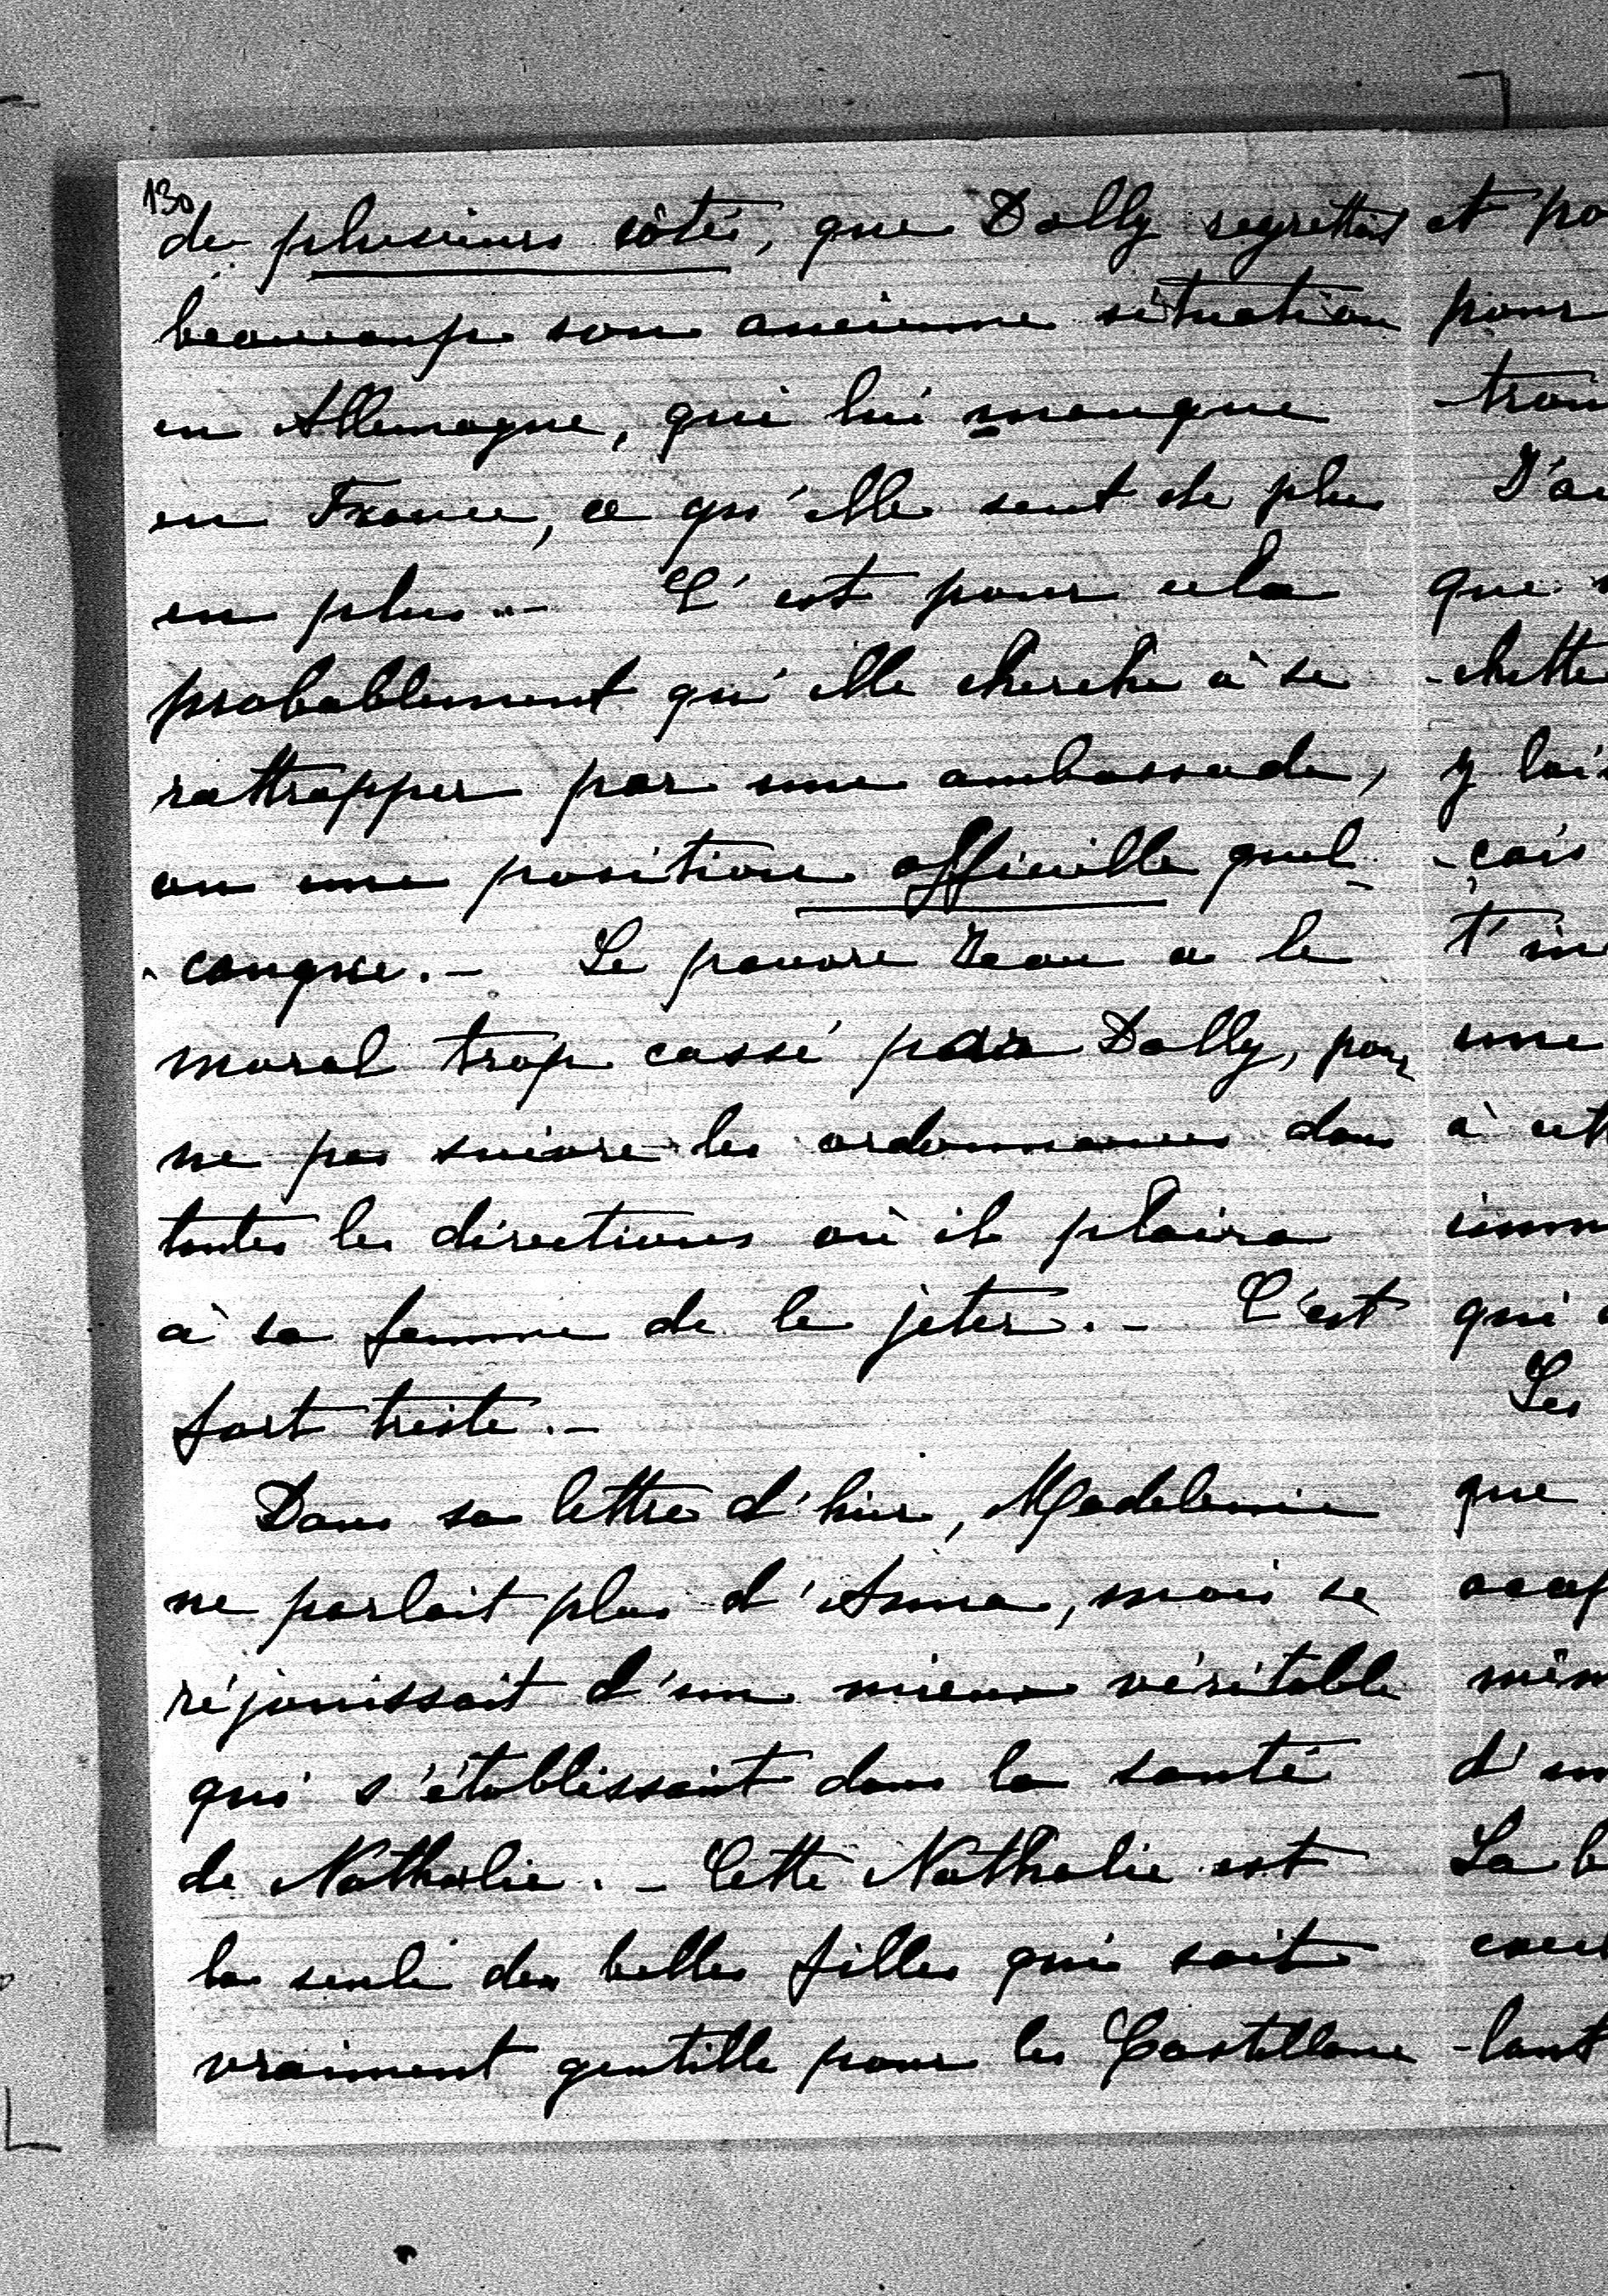 130
de plusieurs côtés, que Dolly regrettait
beaucoup son ancienne situation
en Allemagne, qui lui manque
en France, ce qu'elle sent de plus
en plus... C'est pour cela
probablement qu'elle cherche à se
rattrapper par une ambassade,
ou une position officielle quel-
-conque.- Le pauvre Jean a le
moral trop cassé par Dolly, pour
ne pas suivre les ordonnances dans
toutes les directions où il plaira
à sa femme de le jeter.- C'est
fort triste.-
Dans sa lettre d'hier, Madeleine
ne parlait plus d'Anna, mais se
réjouissait d'un mieux véritable
qui s'établissait dans la santé
de Nathalie.- Cette Nathalie est
la seule des belles filles qui soit
vraiment gentille pour les Castellane
et po
pour
trou
J'ai
que
-chette
y lais
-çois
t'in
une
à cett
imm
qui
Les
que
occup
mêm
d'un
La b
-lant